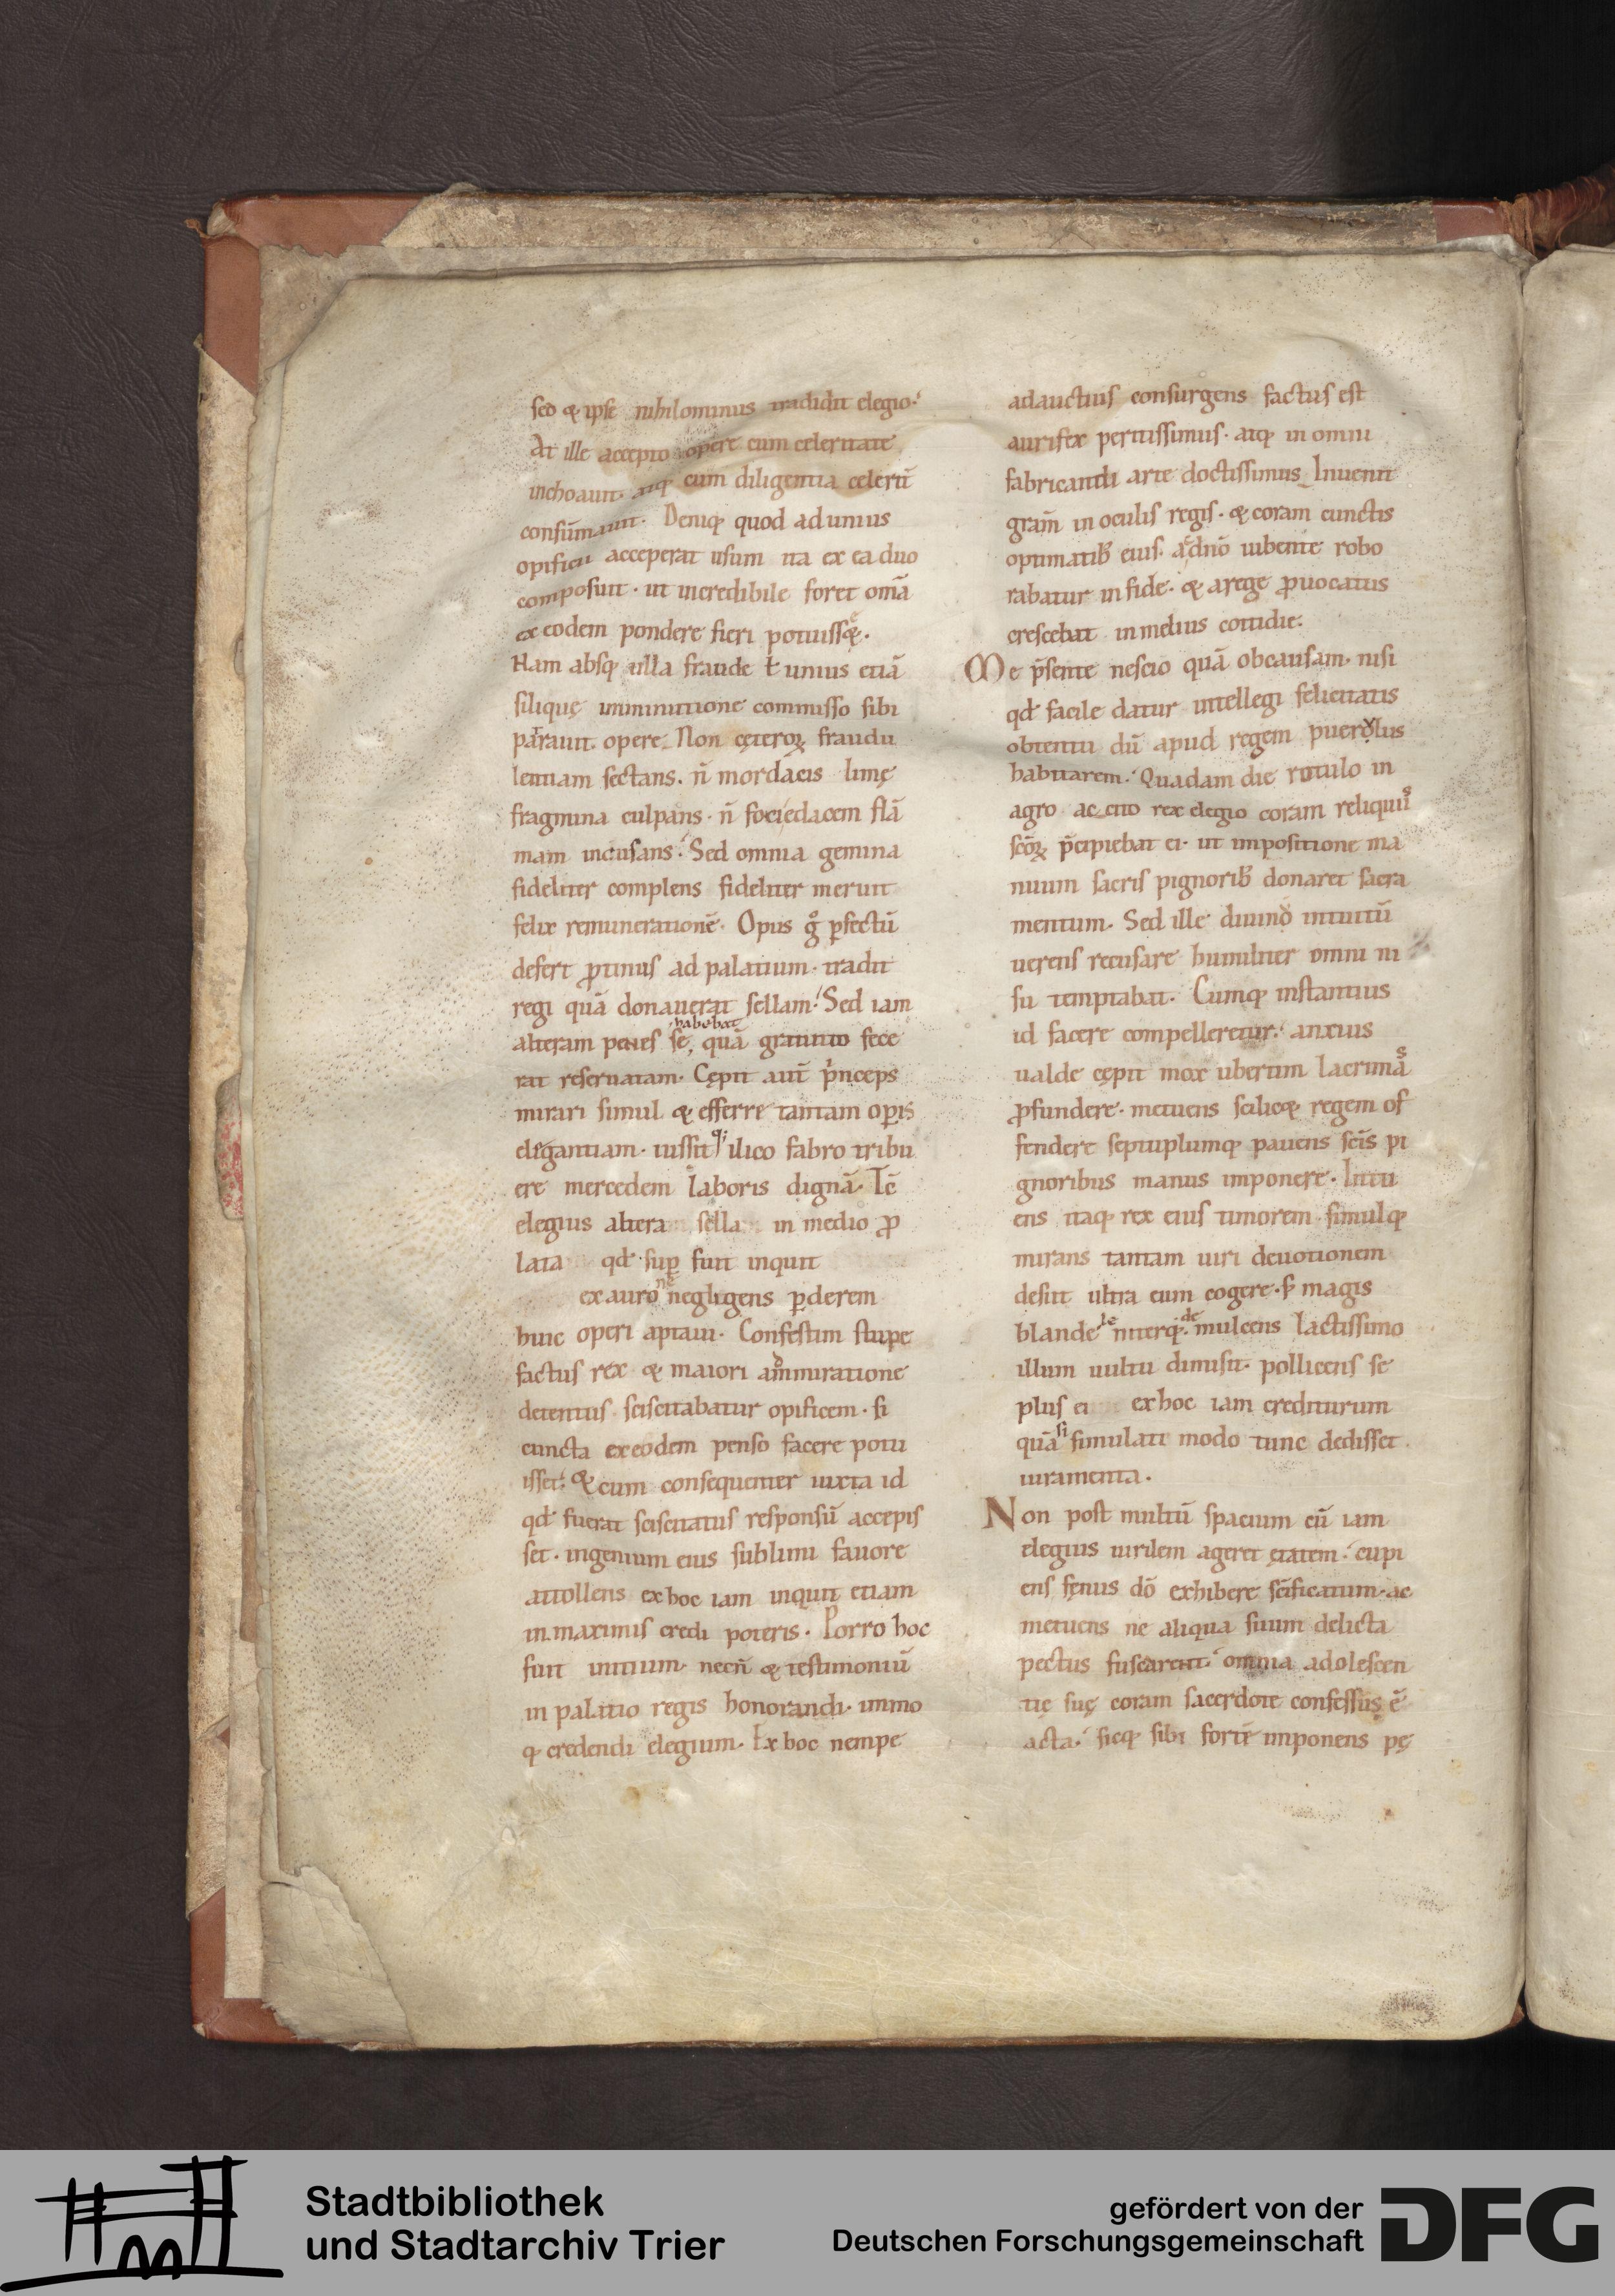 sed & ipse nihilominus tradidit elegio.
At ille accepto opere cum celeritate
inchoauit. atq; cum diligentia celerit̄
consūmauit. Deniq; quod ad unius
opificii acceperat usum ita ex ea duo
composuit. ut incredibile foret om̄a
ex eodem pondere fieri potuiss&.
Nam absq; ulla fraude ł unius etiā
siliquę inminutione commisso sibi
patrauit opere. Non cęteroꝝ fraudu
lentiam sectans. n̄ mordacis limę
fragmina culpans. n̄ foci edacem flā
mam incusans. Sed omnia gemina
fideliter complens fideliter meruit
felix remunerationē. Opus gͦ ꝑfectū
defert ꝓtinus ad palatium. tradit
regi quā donauerat sellam. Sed iam
habebat
alteram penes se, quā gratuito fece
rat reseruatam. Cępit aut̄ pͥnceps
mirari simul & efferre tantam oꝑis
elegantiam. iussitq; ilico fabro tribu
ere mercedem laboris dignā. Tc̄
elegius altera sella in medio ꝓ
lata qđ suꝑ fuit inquit
ex auro ne negligens ꝑderem
huic operi aptaui. Confestim stupe
factus rex & maiori ammiratione
detentus sciscitabatur opificem. si
cuncta ex eodem penso facere potu
isset. & cum consequenter iuxta id
qđ fuerat sciscitatus responsū accepis
set. ingenium eius sublimi fauore
attollens ex hoc iam inquit etiam
in maximis credi poteris. Porro hoc
fuit initium. necn̄ & testimoniū
in palatio regis honorandi. immo
q; credendi elegium. Ex hoc nempe
adauctius consurgens factus est
aurifex peritissimus. atq; in omni
fabricandi arte doctissimus. Inuenit
grām in oculis regis. & coram cunctis
optimatib; eius. a dn̄o iubente robo
rabatur in fide. & a rege ꝓuocatus
crescebat in melius cottidie.
Me p̄sente nescio quā ob causam. nisi
qđ facile datur intellegi felicitatis
obtentu dū apud regem puerulus
habitarem. Quadam die rutulo in
agro accito rex elegio coram reliquiis
sc̄oꝝ p̄cipiebat ei. ut impositione ma
nuum sacris pignorib; donaret sacra
mentum. Sed ille diuino intuitū
uerens recusare humiliter omni ni
su temptabat. Cumq; instantius
id facere compelleretur. anxius
ualde cępit mox ubertim lacrimas
ꝓfundere. metuens scilic& regem of
fendere septuplumq; pauens sc̄is pi
gnoribus manus imponere. Intu
ens itaq; rex eius timorem simulq;
mirans tantam uiri deuotionem
desiit ultra eum cogere. s; magis
blande leniterq; demulcens lactissimo
illum uultu dimisit. pollicens se
plus ei ex hoc iam crediturum
quā si simulati modo tunc dedisset
iuramenta.
Non post multū spacium cū iam
elegius uirilem ageret ętatem. cupi
ens sęnus dō exhibere sc̄ificatum. ac
metuens ne aliqua suum delicta
pectus fuscarent. omnia adolescen
tię suę coram sacerdote confessus ē
acta. sicq; sibi fortē imponens pę
Stadtbibliothek
und Stadtarchiv Trier
gefördert von der
Deutschen Forschungsgemeinschaft
DFG